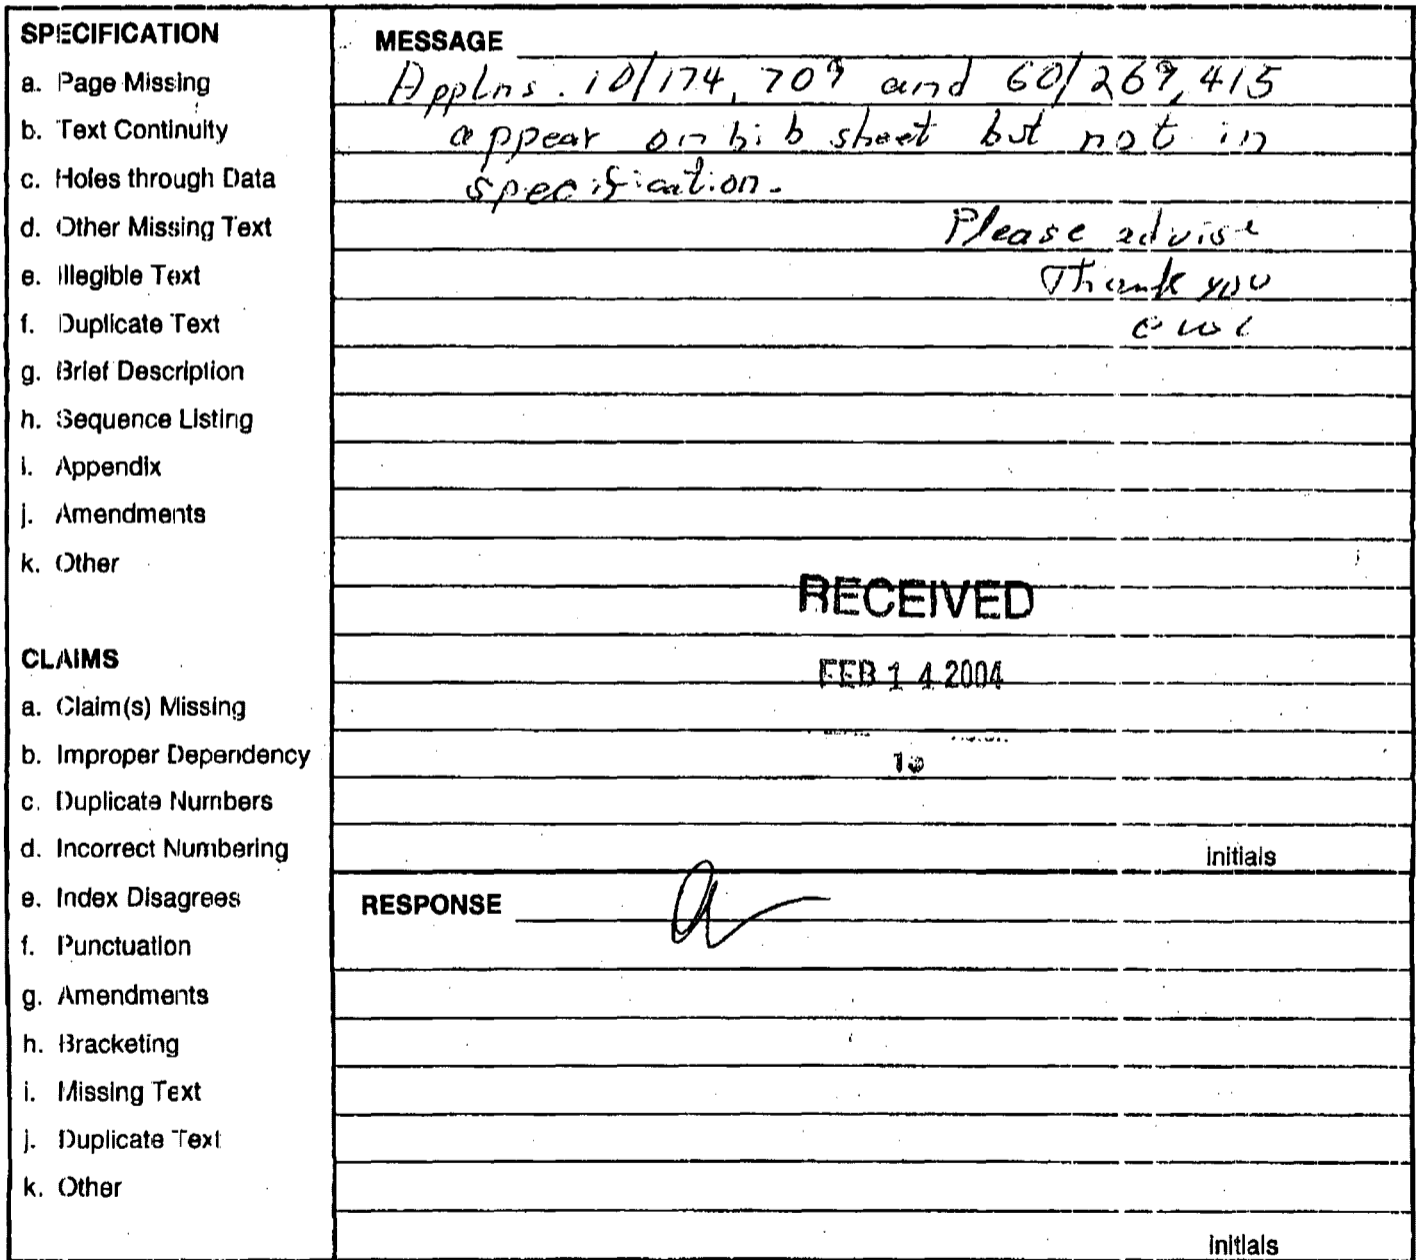 SPECIFICATION
a. Page Missing
b. Text Continuity
c. Holes through Data
d. Other Missing Text
e. Illegible Text
f. Duplicate Text
g. Brief Description
h. Sequence Listing
i. Appendix
j. Amendments
k. Other
CLAIMS
a. Claim(s) Missing
b. Improper Dependency
c. Duplicate Numbers
d. Incorrect Numbering
e. Index Disagrees
f. Punctuation
g. Amendments
h. Bracketing
i. Missing Text
j. Duplicate Text
k. Other
MESSAGE
Applns. 10/174,709 and 60/269,415
appear on bib sheet but not in
specification.
Please advise
Thank you
RECEIVED
FEB 14 2004
initials
RESPONSE
initials